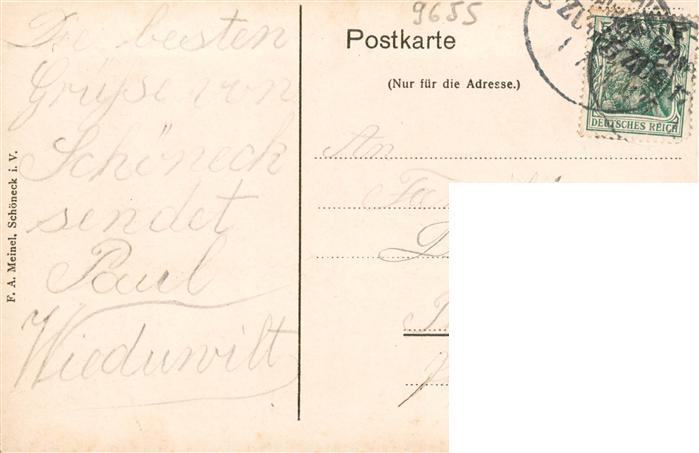 9655
Die besten
Grüße von
Schöneck
sendet
Paul
Wieduwilt
F. A. Meinel, Schöneck i. V.
Postkarte
(Nur für die Adresse.)
DEUTSCHES REICH
An